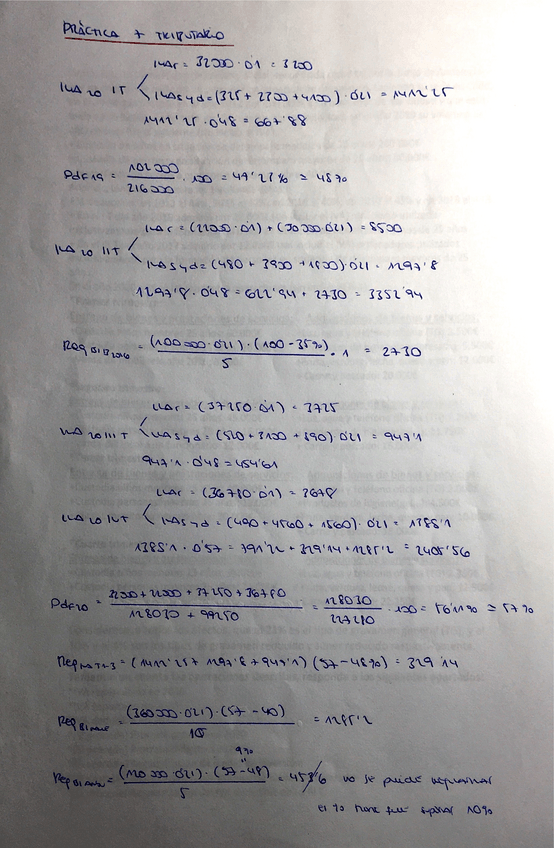 PRÁCTICA 7 TRIBUTARIO
IVAr = 32000 · 0'1 = 3200
IVA 20 IT
IVAsyd = (325 + 2300 + 4100) · 0'21 = 1412'25
1412'25 · 0'48 = 667'88
PdF19 = 102000 / 216000 · 100 = 47'22% ≃ 48%
IVAr = (22000 · 0'1) + (30000 · 0'21) = 8500
IVA 20 IIT
IVAsyd = (480 + 3900 + 1800) · 0'21 = 1297'8
1297'8 · 0'48 = 622'94 + 2730 = 3352'94
Reg BI 2016 = (100000 · 0'21) · (100 - 35%) / 5 · 1 = 2730
IVAr = (37250 · 0'1) = 3725
IVA 20 III T
IVAsyd = (520 + 3100 + 890) · 0'21 = 947'1
947'1 · 0'48 = 454'61
IVAr = (36780 · 0'1) = 3678
IVA 20 IV T
IVAsyd = (490 + 4560 + 1560) · 0'21 = 1388'1
1388'1 · 0'57 = 791'22 + 329'14 + 1285'2 = 2405'56
PdF20 = 32000 + 22000 + 37250 + 36780 / 128030 + 99250 = 128030 / 227280 · 100 = 56'11% ≃ 57%
Reg = (1412'25 + 1297'8 + 947'1) (57 - 48%) = 329'14
Reg = (360000 · 0'21) · (57 - 40) / 10 = 1285'2
9%
Reg = (120000 · 0'21) · (57 - 48) / 5 = 453'6 no se puede regularizar
el % tiene que superar 10%